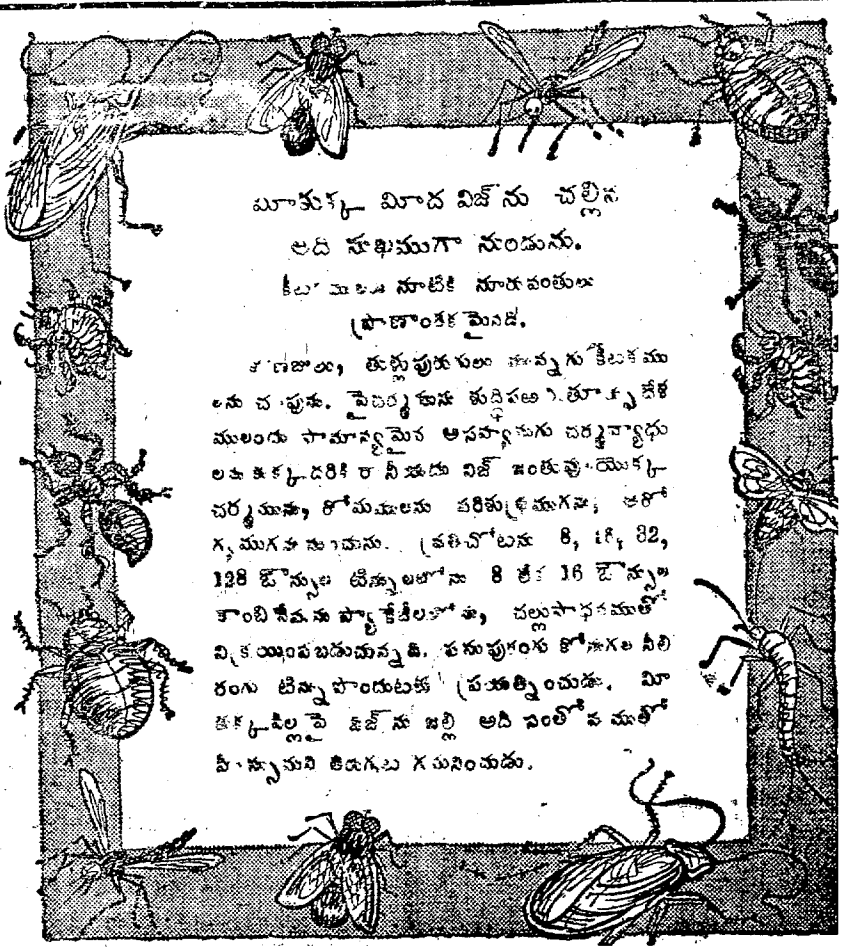 మీకుక్క మీద విజ్‌ను చల్లిన
అది సుఖముగా నుండును.
కీటకములకు నూటికి నూరువంతులు
ప్రాణాంతక మైనది.
తుళ్లుపురుగులు మున్నగు కీటకము
లను చంపును. పైచర్మమును శుద్ధిపఱచి తూర్పు దేశ
ములందు సామాన్యమైన అసహ్యమగు చర్మవ్యాధు
లకు కుక్కదరికి రానీయదు విజ్ జంతువుయొక్క
చర్మమును, రోమములను పరిశుభ్రముగను, ఆరో
గ్యముగను నుంచును. ప్రతిచోటను 8, 16, 32,
128 ఔన్సుల టిన్నులలోను 8 లేక 16 ఔన్సుల
కాంబినేషను ప్యాకెట్లలోను, చల్లుసాధనముతో
విక్రయింపబడుచున్నది. పసుపురంగు కోణముగల నీలి
రంగు టిన్ను పొందుటకు ప్రయత్నించుడు. మీ
కుక్కపిల్లపై విజ్‌ను జల్లి అది సంతోషముతో
తిరుగుట గమనించుడు.